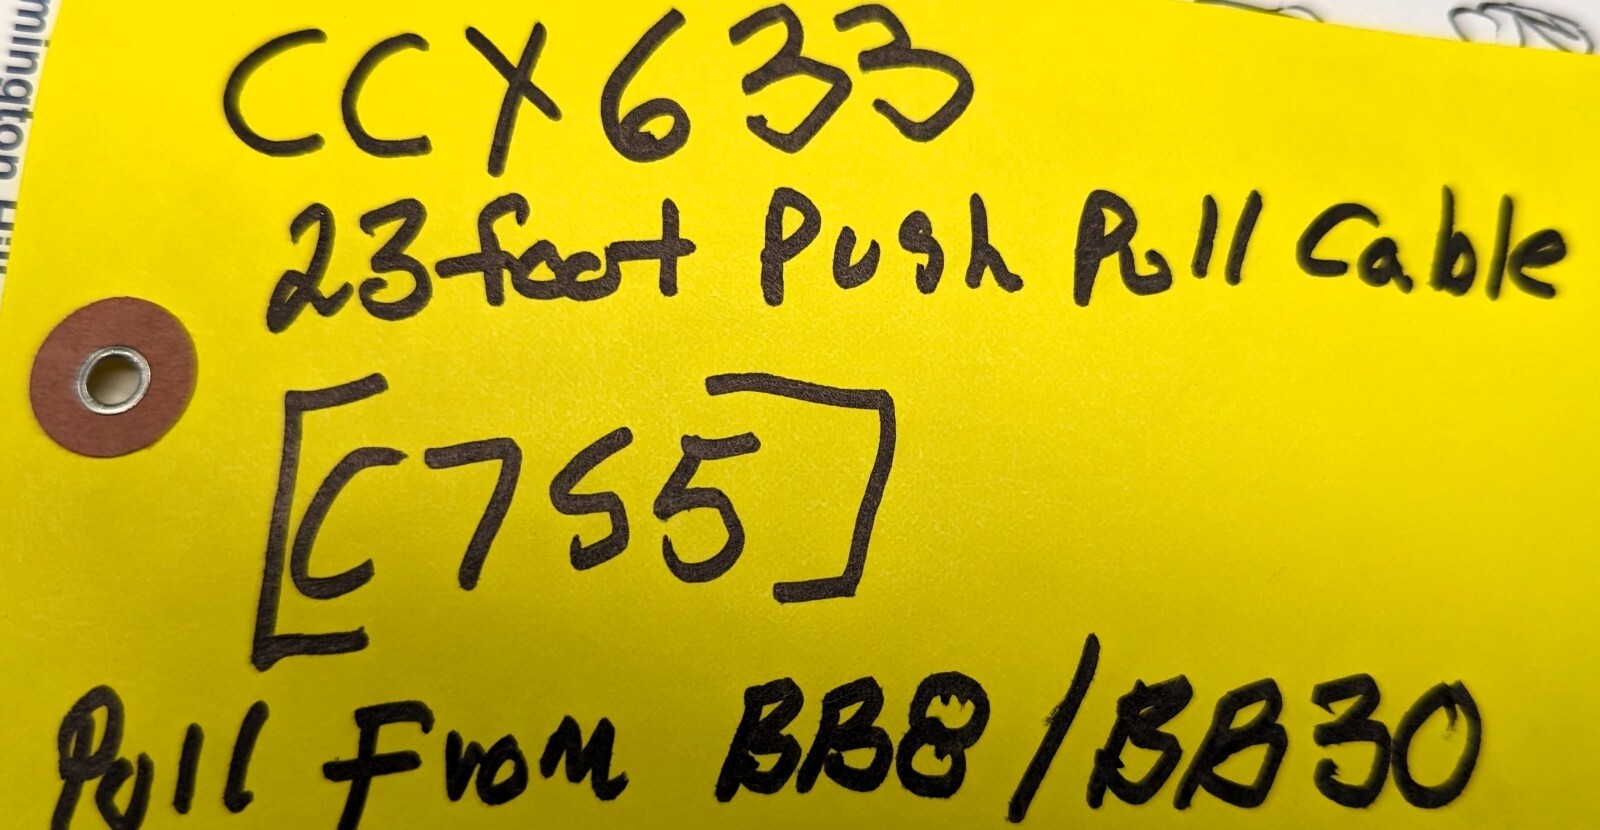 CCX633
23 foot Push Pull Cable
[C755]
Pull From BB8/BB30
mington Hill